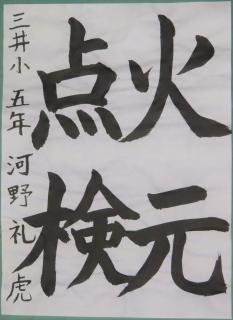 火元
点検
三井小 五年 河野 礼虎